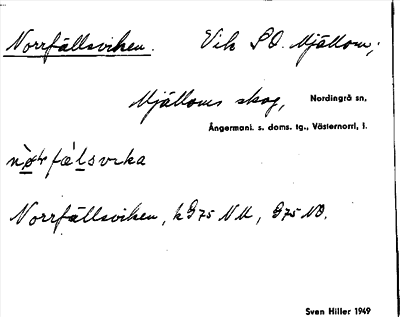 Norrfällsviken. Vik SO. Mjällom;
Mjälloms skog, Nordingrå sn,
Ångermanl. s. doms. tg., Västernorrl. l.
fälsvika
Norrfällsviken, k 975 NV, 975 NO.
Sven Hiller 1949